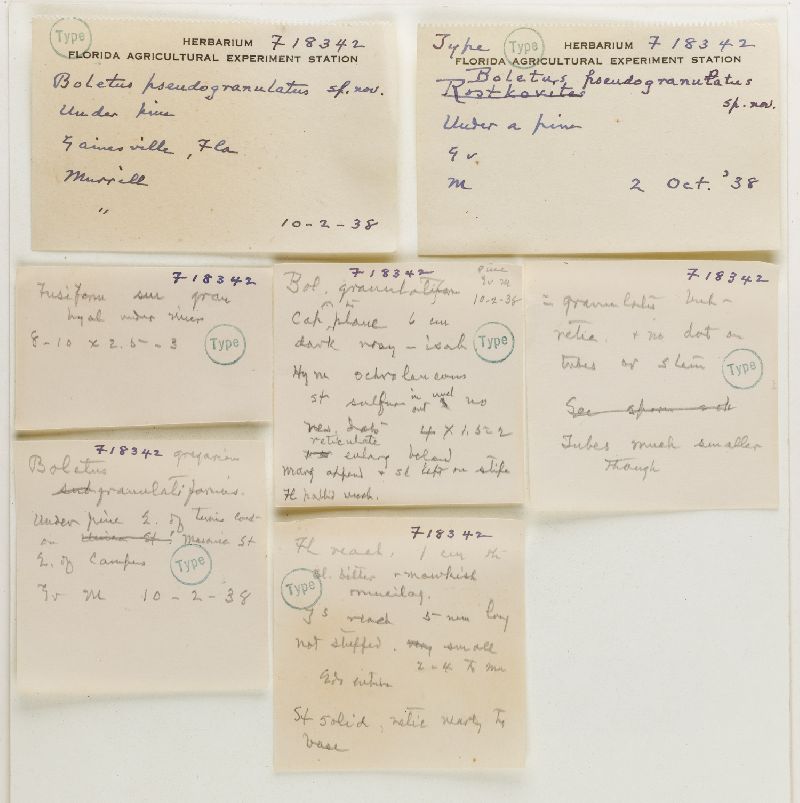 Type
HERBARIUM F 18342
FLORIDA AGRICULTURAL EXPERIMENT STATION
Boletus pseudogranulatus sp. nov.
Under pine
Gainesville, Fla
Murrill
"
10-2-38
Type Type HERBARIUM F 18342
FLORIDA AGRICULTURAL EXPERIMENT STATION
Boletus pseudogranulatus
Rostkovites
sp. nov.
Under a pine
Gv
M 2 Oct. '38
F 18342
Fusiform
hyal under
8-10 x 2.5-3
Type
F 18342
pine
Gv M
10-2-38
Bol.
Cap plane 6 cm
dark
Type
Hym ochroleucous
st sulfur no
reticulate 4 x 1.5-2
enlarg below
marg append + on stipe
Fl pallid
F 18342
= granulatus
retic. + no dot on
tubes or stem
Type
See spores
Tubes much smaller
though
F 18342
Boletus gregarious
sub granulatiformis.
Under pine E. of tennis court
on Masonic St
E. of Campus
Type
Gv M 10-2-38
F 18342
Fl 1 cm th
sl. bitter + mawkish
Type
mucilag.
5 mm long
not stuffed. very small
2-4 to mm
Edges entire
St solid, retic nearly to
base